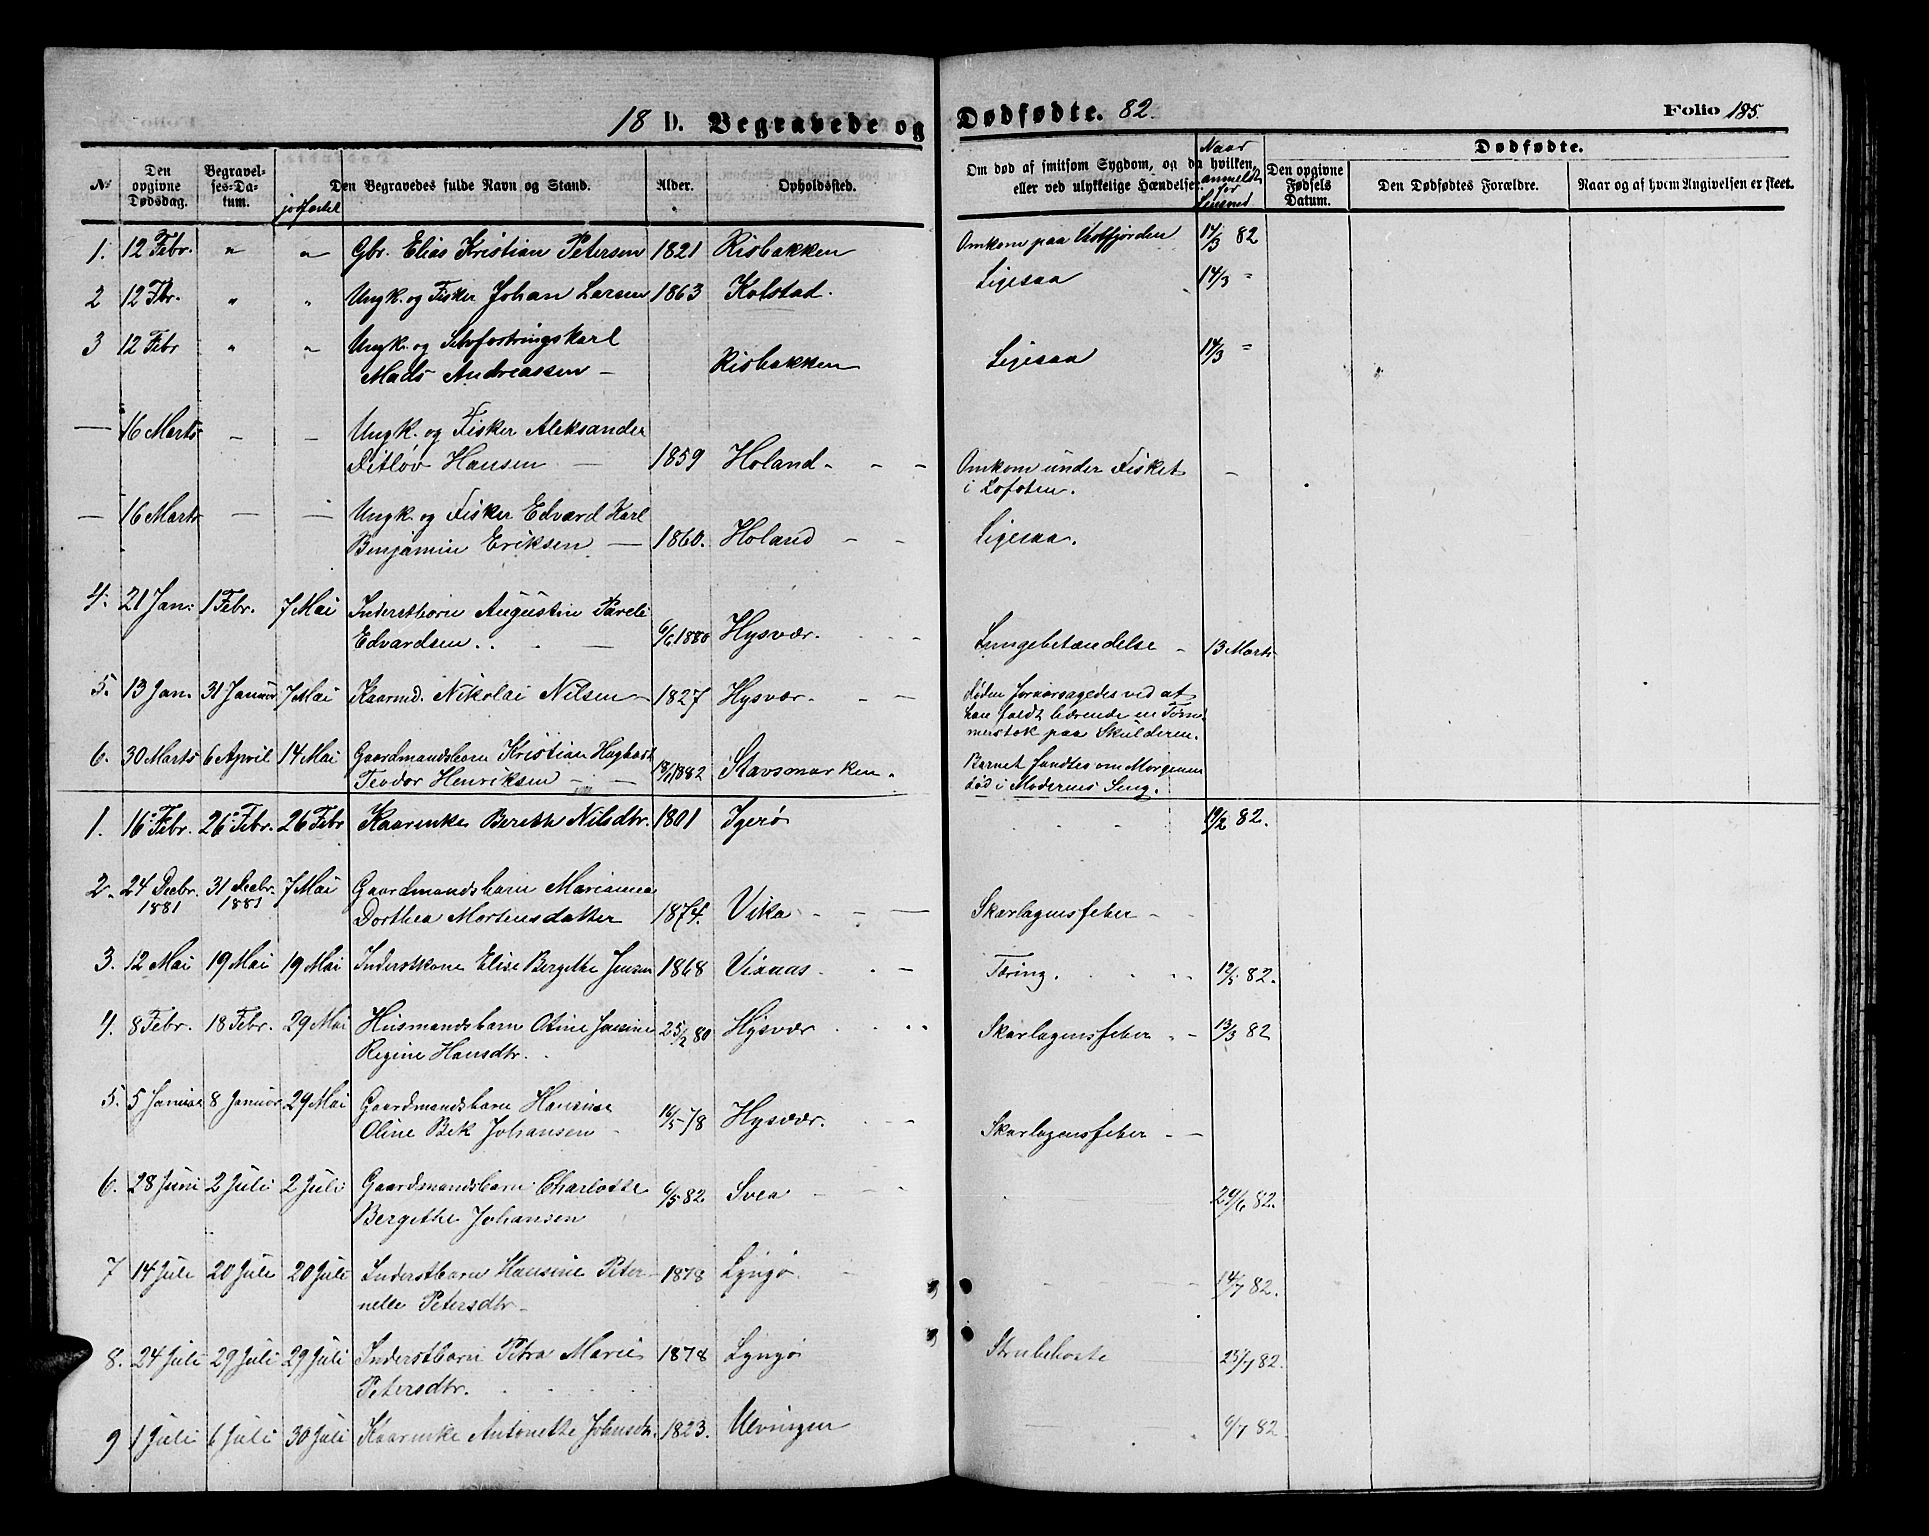 18 D. Begravede og Dødfødte. 82. Folio 185.
No. Den opgivne Dødsdag. Begravelses-Datum. jordfæstet Den Begravedes fulde Navn og Stand. Alder. Opholdssted. Om død af smitsom Sygdom, og da hvilken, eller ved ulykkelige Hændelser. Naar anmeldt for Lensmd Dødfødte.
Den opgivne Fødsels Datum. Den Dødfødtes Forældre. Naar og af hvem Angivelsen er skeet.
1. 12 Febr. " " Gbr. Elias Kristian Petersen 1821 Risbakken Omkom paa Vestfjorden 14/3 82
2 12 Fbr. " " Ungk. og Fisker Johan Larsen 1863 Kolstad. Ligesaa 14/3 "
3 12 Febr " " Ungk. og Selvfostringskarl
Mads Andreassen - Risbakken Ligesaa 14/3 "
— 16 Marts — — Ungk. og Fisker Aleksander
Ditløv Hansen — 1859 Holand - - - Omkom under Fisket —
i Lofoten.
— 16 Marts — — Ungk. og Fisker Edvard Karl
Benjamin Eriksen — 1860. Holand - - Ligesaa.
4. 21 Jan: 1 Febr. 7 Mai Inderstbarn Augustin Pareli
Edvardsen . . . — 6/6 1880 Hysvær. Lungebetændelse - 13 Marts
5. 13 Jan. 31 Januar 7 Mai Kaarmd. Nikolai Nilsen - 1827 Hysvær. - — Døden foraarsagedes ved at
han faldt bærende en Tøm-
merstok paa Skulderen.
6. 30 Marts 6 April 14 Mai Gaardmandsbarn Kristian Hagbart
Teodor Henriksen - — 1882 Stavsmarken. Barnet fandtes om Morgenen
død i Moderens Seng.
1. 16 Febr. 26 Febr. 26 Febr Kaarenke Bereth Nilsdtr. 1801 Igerø 19/2 82.
2. 24 Decbr. 1881 31 Decbr. 1881 7 Mai Gaardmandsbarn Marianna
Dorthea Mortensdatter 1874. Vika - - — Skarlagensfeber -
3. 12 Mai 19 Mai 19 Mai Inderstkone Elise Bergethe Jensen 1848 Vixaas. - — Tæring. 12/5 82.
4. 8 Febr. 18 Febr. 29 Mai Husmandsbarn Oline Jensine
Regine Hansdtr. 25/2 80 Hysvær Skarlagensfeber - - 13/3 82
5. 5 Januar 8 Januar 29 Mai Gaardmandsbarn Hansine
Oline Bek Johansen - 16/5 78 Hysvær. - — Skarlagensfeber - —
6. 28 Juni 2 Juli 2 Juli Gaardmandsbarn Charlotte
Bergethe Johansen 6/5 82. Svea 29/6 82.
7 14 Juli 20 Juli 20 Juli Inderstbarn Hansine Peter-
nelle Petersdtr. 1878 Lyngø. 14/7 82.
8. 24 Juli 29 Juli 29 Juli Inderstbarn Petra Marie
Petersdtr. 1878 Lyngø Strubehoste 25/7 82.
9 1 Juli 6 Juli 30 Juli Kaarenke Antonette Johnsdtr. 1823. Ulvingen 6/7 82